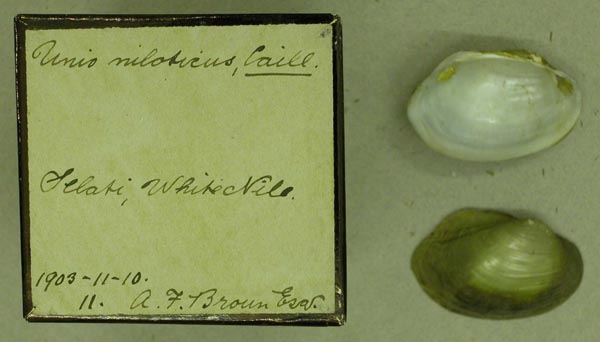 Unio niloticus, Caill.
White Nile.
1903-11-10.
11. A. F. Broun Esqr.